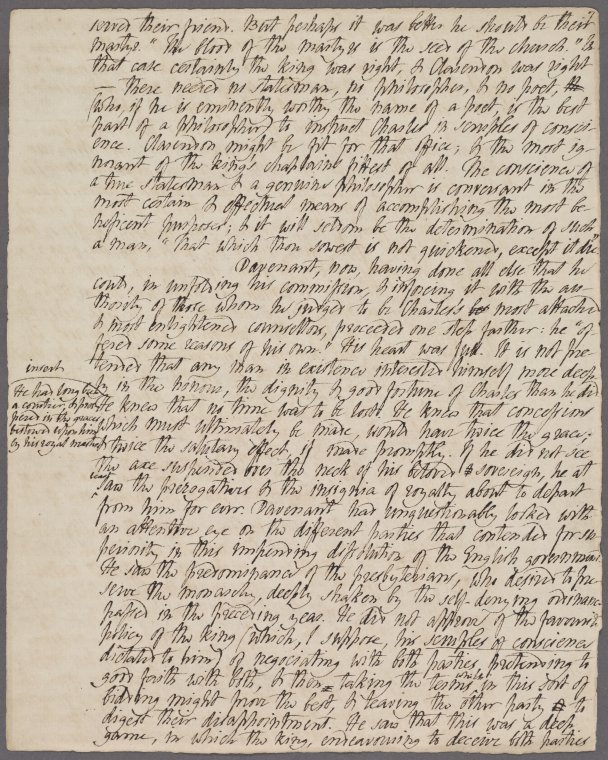 served their friend. But perhaps it was better he should be their
martyr. "The blood of the martyrs is the seed of the church." In
that case certainly the king was right, & Clarendon was right
— There needed no statesman, no philosopher, & no poet,
who, if he is eminently worthy the name of a poet, is the best
part of a philosopher, to instruct Charles in scruples of consci-
ence. Clarendon might be fit for that office; & the most ig-
norant of the king's chaplains fittest of all. The conscience of
a true statesman & a genuine philosopher is conversant in the
most certain & effectual means of accomplishing the most be-
neficent purposes; & it will seldom be the determination of such
a man, "That which thou sowest is not quickened, except it die."
Davenant, now, having done all else that he
could, in unfolding his commission, & inforcing it with the au-
thority of those whom he judged to be Charles's most attached
& most enlightened counsellors, proceeded one step farther: he "of-
fered some reasons of his own." His heart was full. It is not pre-
tended that any man in existence interested himself more deep-
ly in the honour, the dignity & good fortune of Charles than he did.
insert
He had long been
a courtier, & prosp
pered in the graces
bestowed upon him
by his royal master
He knew that no time was to be lost. He knew that concessions
which must ultimately be made, would have twice the grace,
& twice the salutary effect, if made promptly. If he did not see
the axe suspended over the neck of his beloved sovereign, he at
least saw the prerogatives & the insignia of royalty about to depart
from him for ever. Davenant had unquestionably looked with
an attentive eye on the different parties that contended for su-
periority in this impending dissolution of the English government.
He saw the predominance of the presbyterians, who desired to pre-
serve the monarchy, deeply shaken by the self-denying ordinance
passed in the preceding year. He did not approve of the favourite
policy of the king (which, I suppose, his scruples of conscience
dictated to him) of negociating with both parties, pretending to
good faith with both, & then taking the terms which in this sort of
bidding might prove the best, & leaving the other party to
digest their disappointment. He saw that this was a deep
game, in which the king, endeavouring to deceive both parties